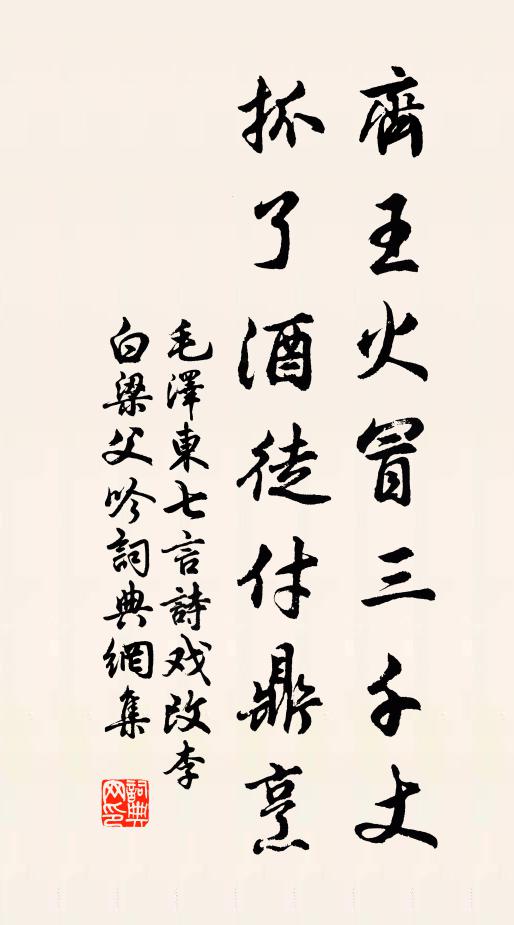 齊王火冒三千丈
抓了酒徒付鼎烹
毛澤東七言詩戏改李
白梁父吟詞典網集
詞典網印